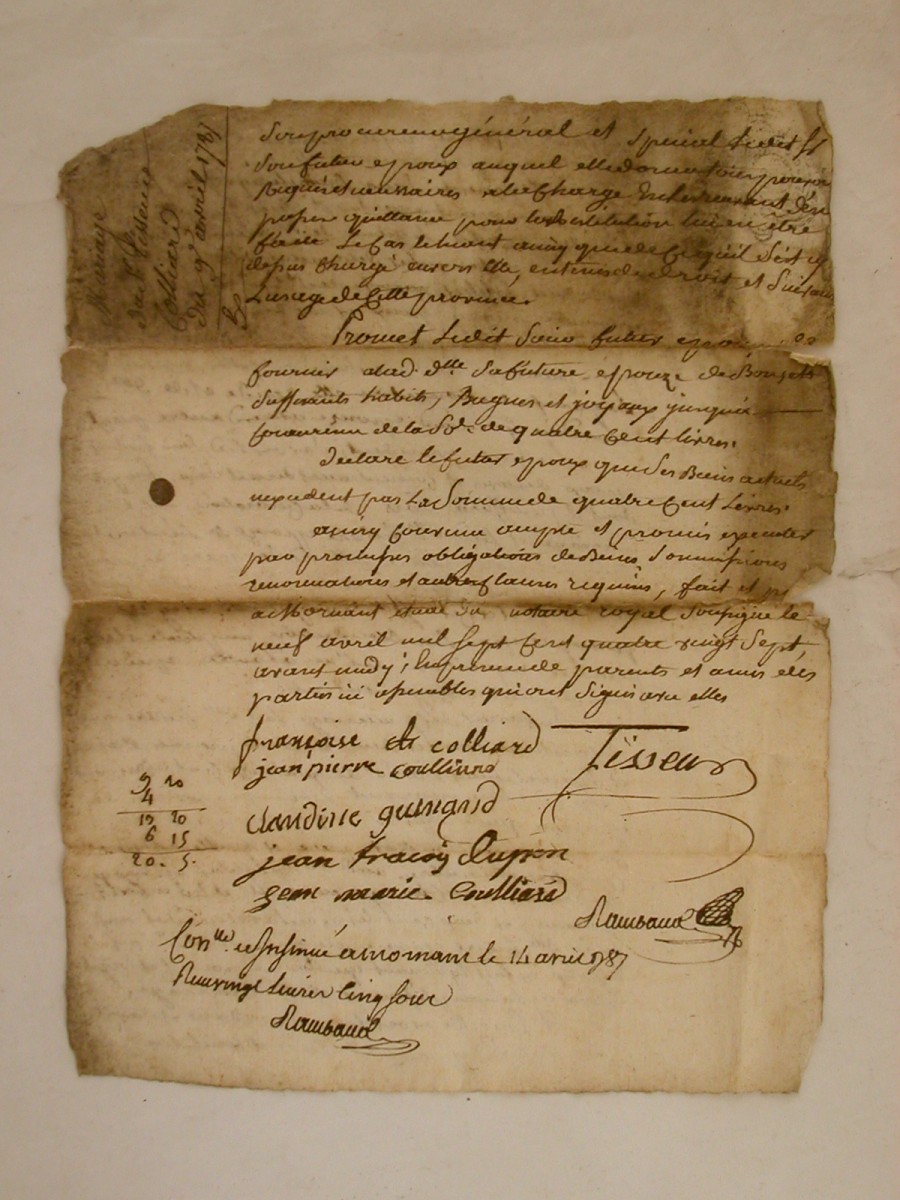 Mariage
du S.r Tisseur
Colliard
du 9.e avril 1787
son procureur général et spécial ledit Sr
son futur epoux auquel elle donne tous pouvoirs
requis et necessaires a la charge en recevant d'en
passer quittance pour la restitution lui en être
faite le cas echeant ainsy que de ce qu'il s'est cy
depuis chargé envers elle, en termes de droit et suivant
L'usage de Cette province.
Promet ledit Sieur futur epoux de
fournir a lad. d.lle sa future epouze de Bons et
suffisants habits, Bagues et joyaux jusqua
concurrence de la So.e de quatre Cent livres.
declare le futur epoux que ses Biens actuels
nexedent pas La Somme de quatre Cent Livres.
ainsy convenu accepté et promis executer
par promesses obligations de Biens, soumissions
renonciations et autres clauses requises, fait et passé
a Mornant étude du notaire royal soussigné le
neuf avril mil sept Cent quatre vingt Sept,
avant midy, en presence de parents et amis des
parties ici assemblés qui ont signés avec elles
françoise Colliard
Tisseur
jean pierre coulliard
9 20
4
13 20
6 15
20. 5.
claudine guinand
jean
jean marie Coulliard
Rambaud
Con.lle et Insinué a mornant le 14 avril 1787
Reçu vingt Livres Cinq Sous
Rambaud